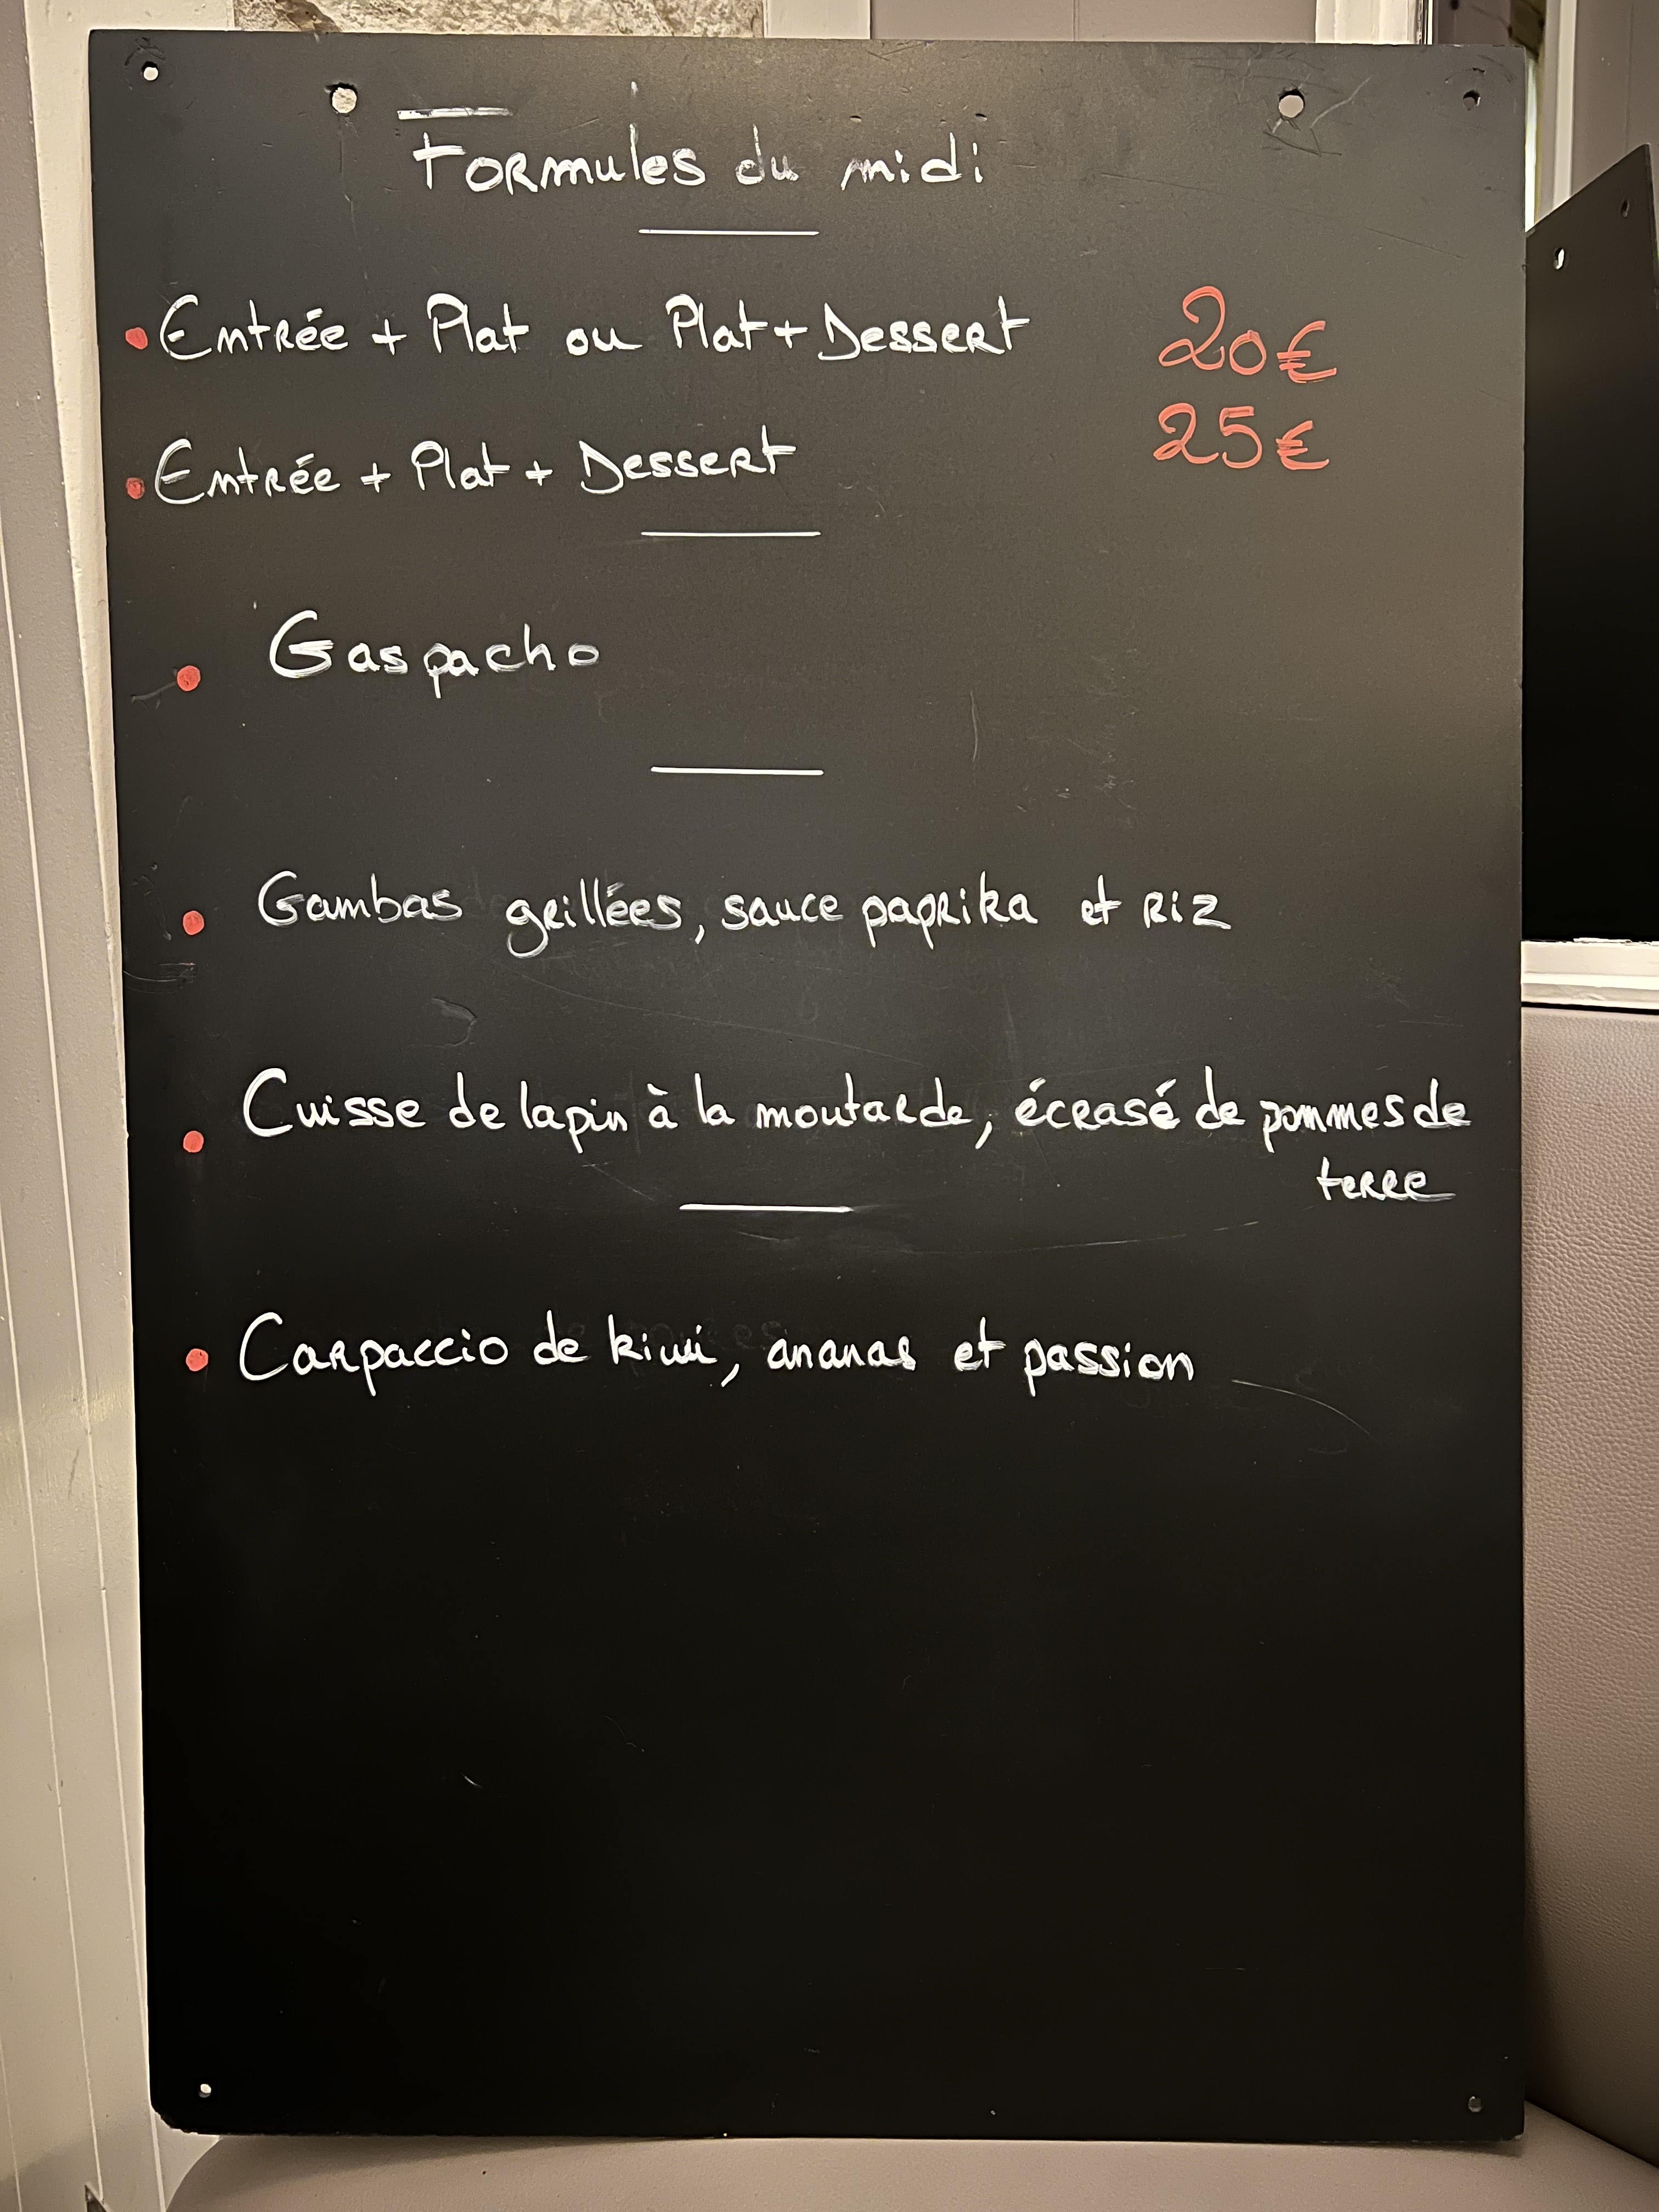 Formules du midi
• Entrée + Plat ou Plat + Dessert 20€
• Entrée + Plat + Dessert 25€
• Gaspacho
• Gambas grillées, sauce paprika et riz
• Cuisse de lapin à la moutarde, écrasé de pommes de
terre
• Carpaccio de kiwi, ananas et passion